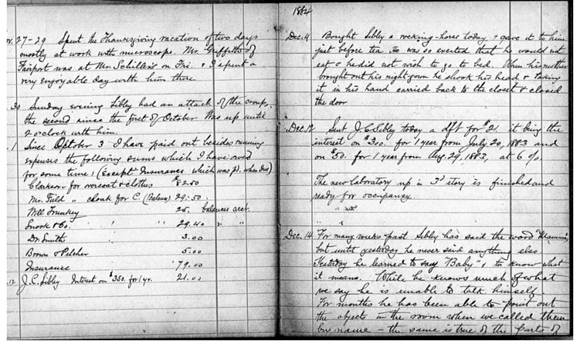 27-29 Spent the Thanksgiving vacation of two days
mostly at work with microscope. Mr. Griffith of
Fairport was at Mr. on Fri. & I spent a
very enjoyable day with him there
30 Sunday evening Libby had an attack of the croup,
the second since the first of October Was up until
2 o'clock with him.
1 Since 3 I have paid out besides running
expenses the following sums which I have owed
for some time; (Except Insurance which was
for overcoat & clothes $82.50
Mr. Field cloak for C (Balance) 29.50
Will 25. balances acct.
Snook & Co. 29.40
Dr. Smith 3.00
Brown & Pilcher 5.00
Insurance 79.00
12 J. C. Libby Interest on $350. for 1 yr. 21.00
1884
Dec. 11 Bought Libby a rocking-horse today & gave it to him
just before tea. He was so excited that he would not
eat & he did not wish to go to bed. When his mother
brought out his nightgown he shook his head & taking
it in his hand carried back to the closet & closed
the door
Dec. 12 Sent J. C. Libby today a dft for $21 it being the
interest on $300. for 1 year from July 20, 1883 and
on $50. for 1 year from Aug. 29, 1883, at 6%.
The new laboratory up in 3d story is finished and
ready for occupancy
Dec. 14 For many weeks past Libby has said the word "Mamma",
but until yesterday he never said anything else
Yesterday he learned to say "Baby", & to know what
it means. While he knows much of what
we say he is unable to talk himself.
For months he has been able to point out
the objects in the room when we called them
by name - the same is true of the parts of